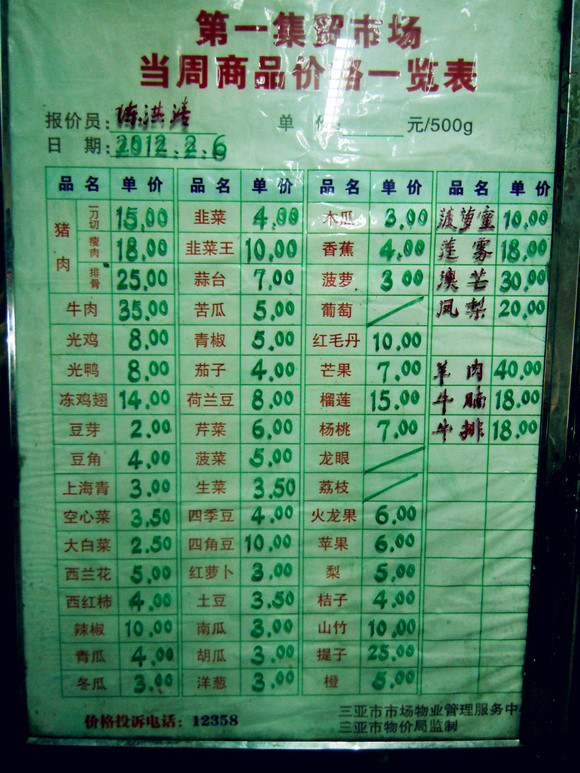 第一集贸市场
当周商品价格一览表
报价员：陈洪涛 单 价：______元/500g
日 期：2012.2.6
品名 单价 品名 单价 品名 单价 品名 单价
猪肉 一刀切 15.00 韭菜 4.00 木瓜 3.00 菠萝蜜 10.00
瘦肉 18.00 韭菜王 10.00 香蕉 4.00 莲雾 18.00
排骨 25.00 蒜台 7.00 菠萝 3.00 澳芒 30.00
牛肉 35.00 苦瓜 5.00 葡萄 凤梨 20.00
光鸡 8.00 青椒 5.00 红毛丹 10.00
光鸭 8.00 茄子 4.00 芒果 7.00 羊肉 40.00
冻鸡翅 14.00 荷兰豆 8.00 榴莲 15.00 牛腩 18.00
豆芽 2.00 芹菜 6.00 杨桃 7.00 牛排 18.00
豆角 4.00 菠菜 5.00 龙眼
上海青 3.00 生菜 3.50 荔枝
空心菜 3.50 四季豆 4.00 火龙果 6.00
大白菜 2.50 四角豆 10.00 苹果 6.00
西兰花 5.00 红萝卜 3.00 梨 5.00
西红柿 4.00 土豆 3.50 桔子 4.00
辣椒 10.00 南瓜 3.00 山竹 10.00
青瓜 4.00 胡瓜 3.00 提子 25.00
冬瓜 3.00 洋葱 3.00 橙 5.00
价格投诉电话：12358
三亚市市场物业管理服务中
三亚市物价局监制